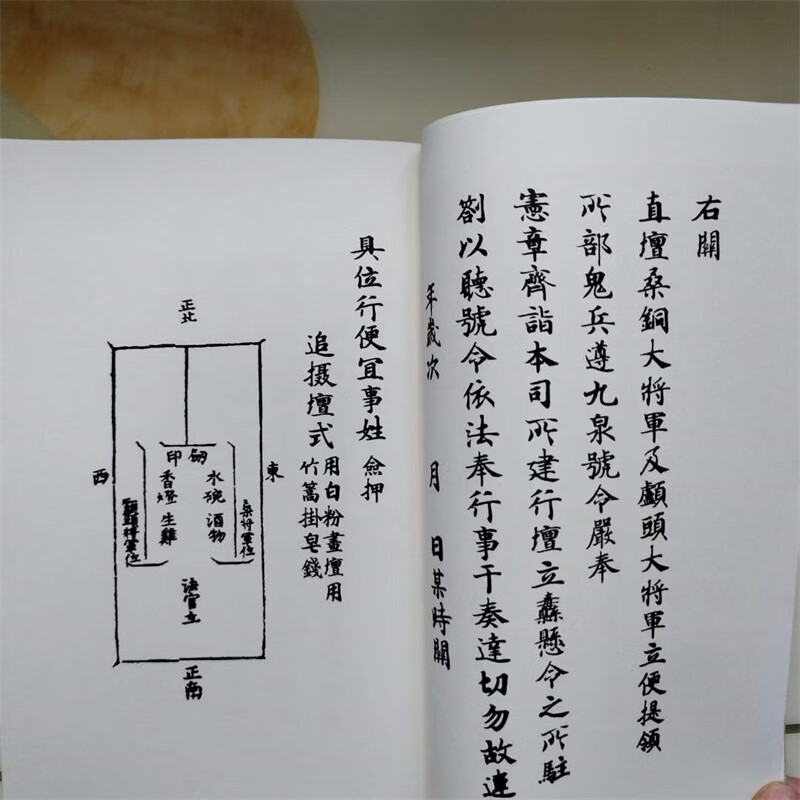 右關
直壇桑銅大將軍及顱頭大將軍立便提領
所部鬼兵遵九泉號令嚴奉
憲章齊詣本司所建行壇立纛懸令之所駐
劄以聽號令依法奉行事干奏達切勿故違
年歲次 月 日某時關
具位行便宜事姓 僉押
追摄壇式 用白粉畫壇用
竹篙掛皂錢
正北
東
西
正南
劒
印
水碗 酒物
香燈 生雞
桑將軍位
顱頭將軍位
法官立